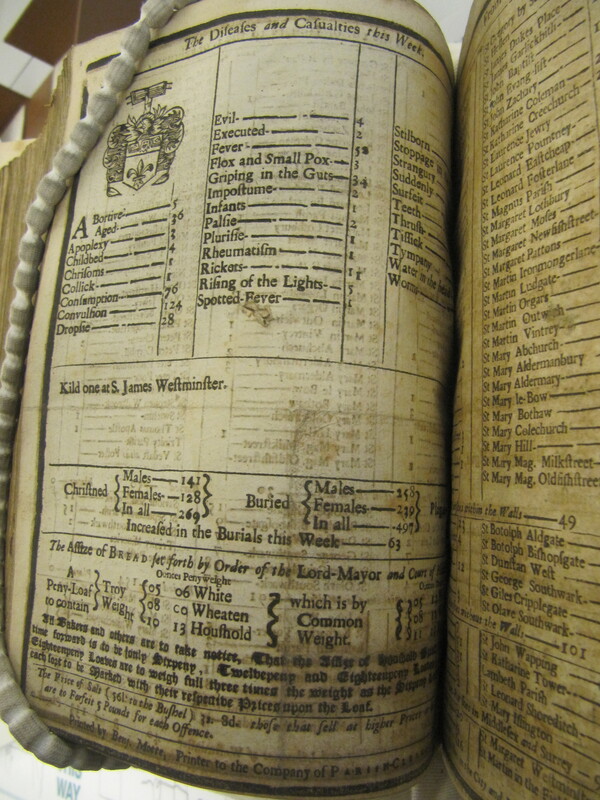 The Diseases and Casualties this Week.
ABortive 5
Aged 36
Apoplexy
Childbed 4
Chrisoms 1
Collick 1
Consumption 76
Convulsion 124
Dropsie 28
Evil 4
Executed 2
Fever 58
Flox and Small Pox 3
Griping in the Guts 34
Impostume 2
Infants 1
Palsie 2
Plurisie 1
Rheumatism 1
Rickets 11
Rising of the Lights 5
Spotted-Fever 1
Stilborn
Stoppage
Strangury
Suddenly
Surfeit
Teeth
Thrush
Tissick
Tympany
Water in the
Worms
Kild one at S. James Westminster.
Christned { Males 141
Females 128
In all 269 }
Buried { Males 258
Females 239
In all 497 }
Increased in the Burials this Week 63
The Assize of BREAD set forth by Order of the Lord-Mayor and Court of
Ounces Penyweight
A Peny-Loaf to contain } Troy Weight { 05 06 White
08 00 Wheaten
10 13 Houshold } which is by Common Weight.
All Bakers and others are to take notice, That the Assize of Houshold
time forward is to be (only Sixpeny, Twelvepeny and Eighteenpeny Loaves
Eighteenpeny Loaves are to weigh full three times the weight as the Sixpeny
each sort to be Marked with their respective Prices upon the Loaf.
The Price of Salt (56 li. to the Bushel) 7s. 8d. those that sell at higher Prices
are to Forfeit 5 Pounds for each Offence.
Printed by Benj. Motte, Printer to the Company of PARISH-
James Dukes Place
James Garlickhith
John Baptist
John Evangelist
John Zachary
Katharine Coleman
Katharine Creechurch
Laurence Jewry
Laurence Pountney
Leonard Eastcheap
Leonard Fosterlane
St Magnus Parish
St Margaret Lothbury
St Margaret Moses
St Margaret Newfishstreet
St Margaret Pattons
St Martin Ironmongerlane
St Martin Ludgate
St Martin Orgars
St Martin Outwich
St Martin Vintrey
St Mary Abchurch
St Mary Aldermanbury
St Mary Aldermary
St Mary le-Bow
St Mary Bothaw
St Mary Colechurch
St Mary Hill
St Mary Mag. Milkstreet
St Mary Mag. Oldfishstreet
within the Walls 49
St Botolph Aldgate
St Botolph Bishopsgate
St Dunstan West
St George Southwark
St Giles Cripplegate
St Olave Southwark
the Walls 101
St John Wapping
St Katharine Tower
Lambeth Parish
St Leonard Shoreditch
St Mary Islington
in Middlesex and Surrey
St Margaret Westminster
St Martin in the
WAY